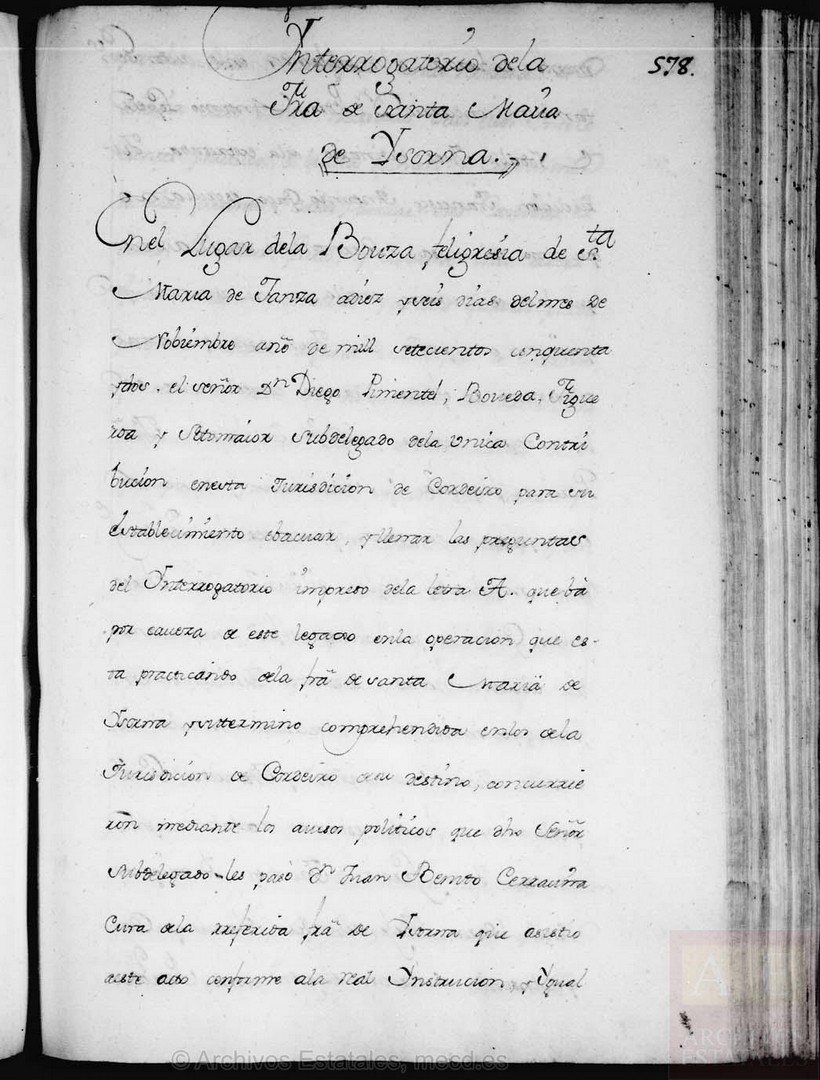 Ynterrogatorio dela
578.
Fra de Santa Maria
de Ysorna.
Enel Lugar dela Bouza feligresia de Sta
Maria de Janza adiez yseis dias delmes de
Nobiembre año de mill setecientos cinquenta
ydos. el señor Dn Diego Pimentel, Boveda, Figue
roa y Sotomaior Subdelegado dela Unica Contri
bucion enesta Jurisdicion de Cordeiro para su
establecimiento ebacuar, yllenar las preguntas
del Ynterrogatorio impreso dela letra A. que bà
por caveza de este legaxo enla operacion que es-
ta practicando dela fra de santa Maria de
Ysorna ysutermino comprehendida enlos dela
Jurisdicion de Cordeiro desu destino, concurrie
ron mediante los avisos politicos que dho Señor
Subdelegado les pasó Dn Juan Benito
Cura dela rreferida fra de Ysorna que asistio
aeste acto conforme ala real Ynstrucion, y Ygual
© Archivos Estatales, mecd.es
ARCHIVOS
ESTATALES